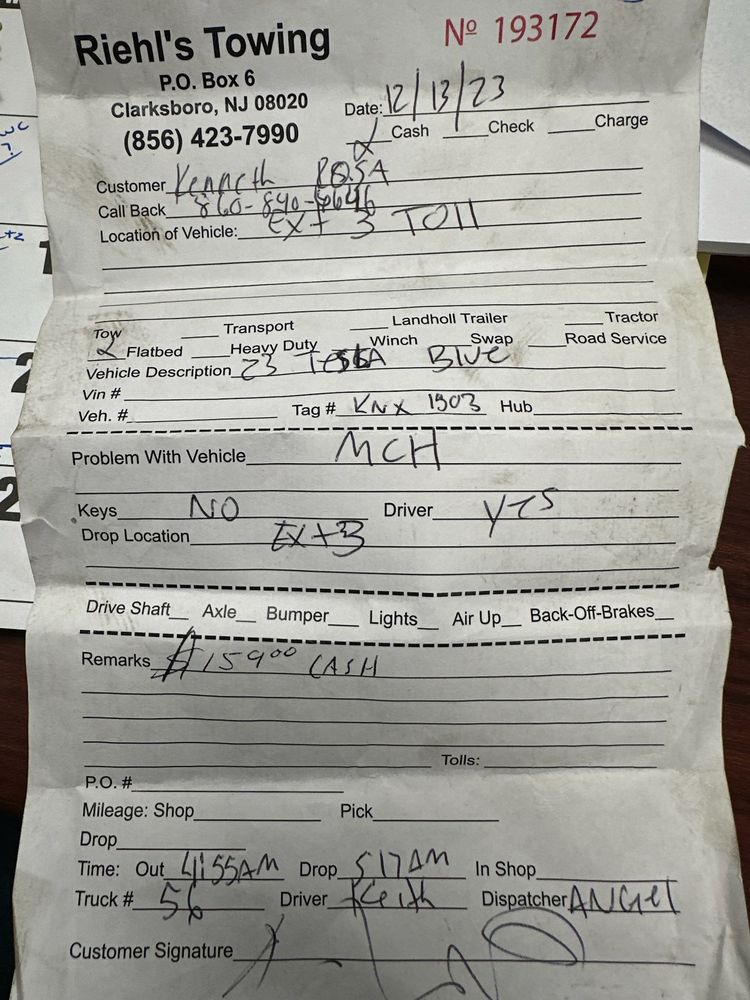 Riehl's Towing
Nº 193172
P.O. Box 6
Clarksboro, NJ 08020
(856) 423-7990
Date: 12/13/23
Cash Check Charge
Customer Kenneth ROSA
Call Back 860-840-
Location of Vehicle: Ext 3 Toll
Tow Transport Landholl Trailer Tractor
Flatbed Heavy Duty Winch Swap Road Service
Vehicle Description 23 TESLA Blue
Vin #
Veh. # Tag # KNX 1903 Hub
Problem With Vehicle MCH
Keys NO Driver YES
Drop Location Ext 3
Drive Shaft Axle Bumper Lights Air Up Back-Off-Brakes
Remarks $159.00 CASH
Tolls:
P.O. #
Mileage: Shop Pick
Drop
Time: Out 4:55AM Drop 517AM In Shop
Truck # 56 Driver Keith Dispatcher ANGel
Customer Signature